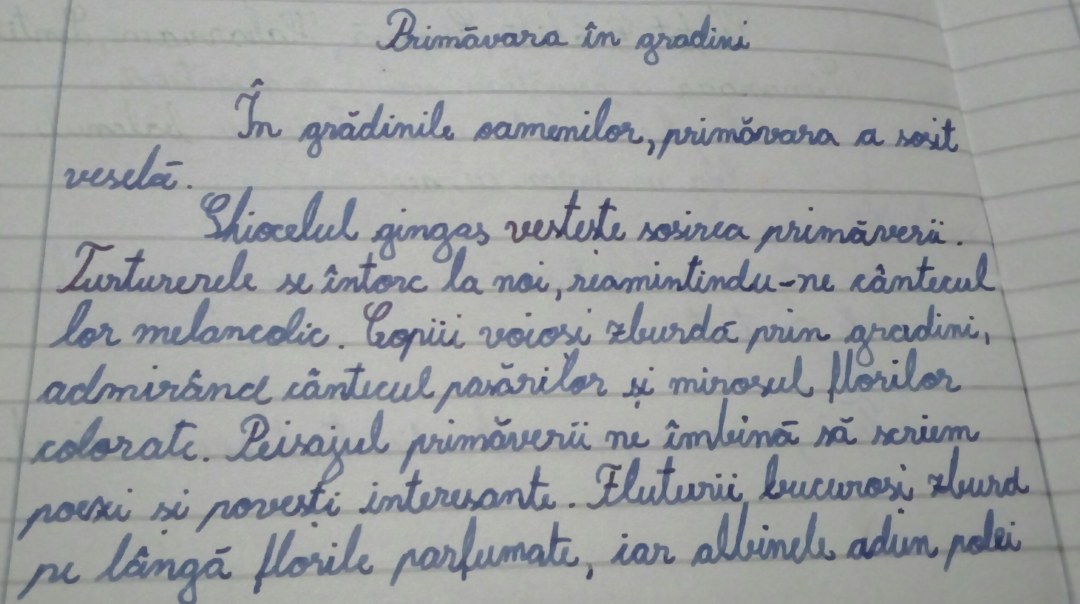 Primăvara în gradini
În grădinile oamenilor, primăvara a sosit
veselă.
Ghiocelul gingaș vestește sosirea primăverii.
Turturerele se întorc la noi, reamintindu-ne cântecul
lor melancolic. Copiii voioși zburdă prin gradini,
admirând cântecul pasărilor și mirosul florilor
colorate. Peisajul primăverii ne îmbină să scriem
poexi și povești interesante. Fluturii bucuroși zburd
pe lângă florile parfumate, iar albinele adun polei